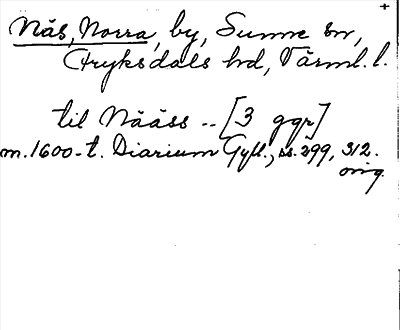 Näs, Norra, by, Sunne sn,
Fryksdals hd, Värml. l.
til Nääss -- [3 ggr]
m. 1600-t. Diarium Gyll., ss. 299, 312.
orig.